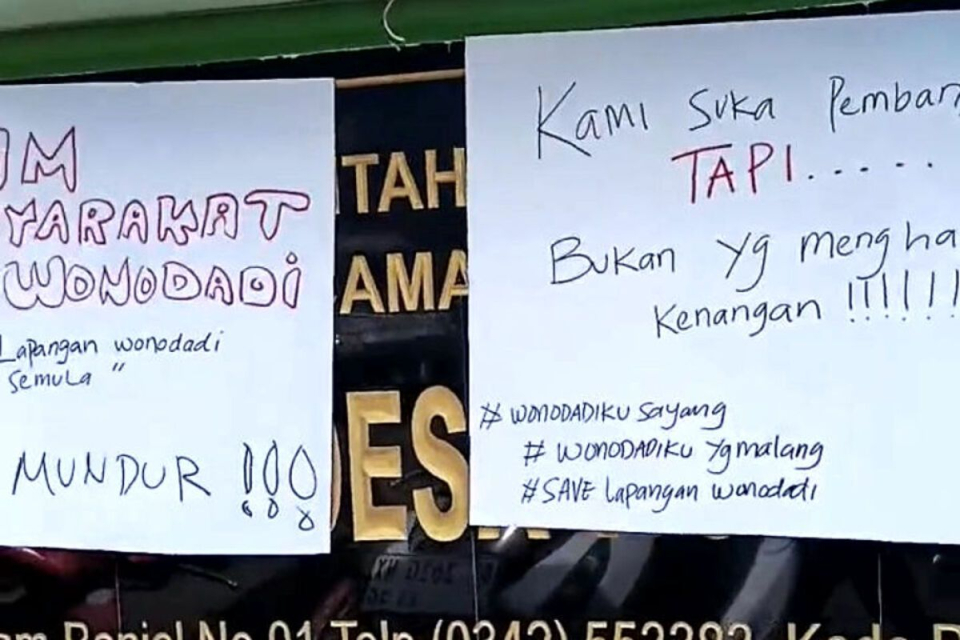 UM
YARAKAT
WONODADI
Lapangan wonodadi
semula "
MUNDUR !!!
TAH
AMA
DES
Kami suka Pemban
TAPI......
Bukan yg mengha
kenangan !!!!!!
# WONODADIKU sayang
# WONODADIKU yg malang
#SAVE Lapangan wonodadi
No.01 Telp (0342) 552282